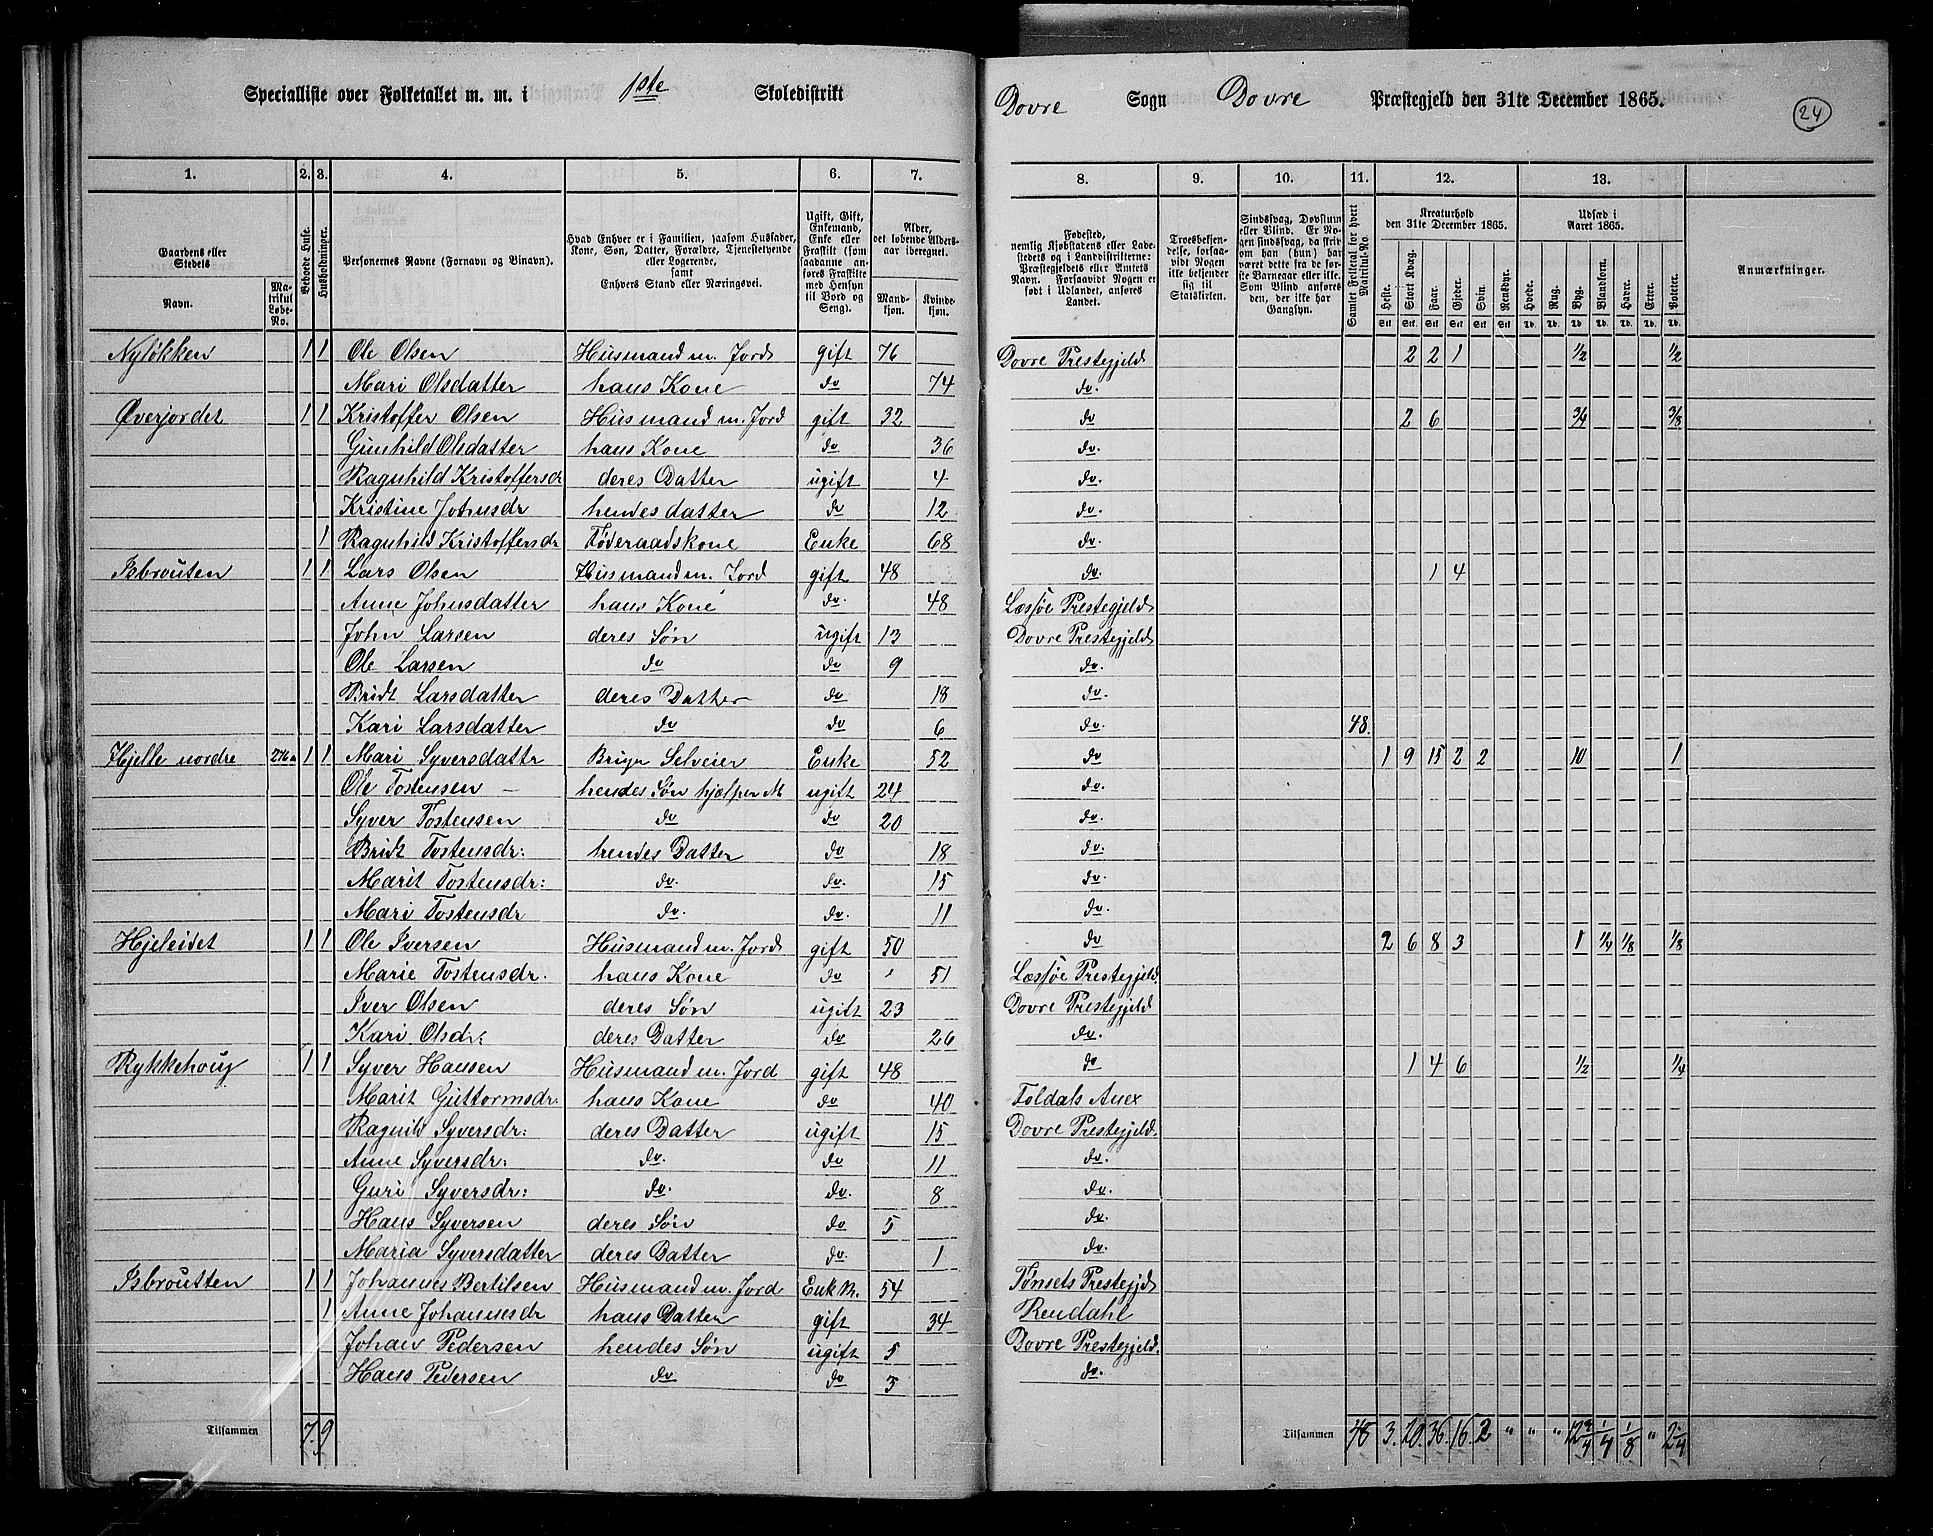 Specialliste over Folketallet m. m. i 1ste Skoledistrikt Dovre Sogn Dovre Præstegjeld den 31te December 1865. 24
1. 2. 3. 4. 5. 6. 7. 8. 9. 10. 11. 12. 13.
Gaardens eller Stedets
Navn.
Matrikul Løbe-No.
Beboede Huse.
Husholdninger.
Personernes Navne (Fornavn og Binavn).
Hvad Enhver er i Familien, saasom Husfader, Kone, Søn, Datter, Forældre, Tjenestetyende eller Logerende, samt Enhvers Stand eller Næringsvei.
Ugift, Gift, Enkemand, Enke eller Fraskilt (som saadanne anføres Fraskilte med Hensyn til Bord og Seng).
Alder, det løbende Alders-aar iberegnet.
Mandkjøn. Kvindekjøn.
Fødested, nemlig Kjøbstadens eller Ladestedets og i Landdistrikterne: Præstegjeldets eller Amtets Navn. Forsaavidt Nogen er født i Udlandet, anføres Landet.
Troesbekjendelse, forsaavidt Nogen ikke bekjender sig til Statskirken.
Sindssvag, Døvstum eller Blind. Er Nogen sindssvag, da skrives om han (hun) har været dette fra de første Barneaar eller ikke. Som Blind anføres den, der ikke har Gangsyn.
Samlet Folketal for hvert Matrikul-No.
Kreaturhold den 31te December 1865.
Heste. Stort Kvæg. Faar. Gjeder. Svin. Rensdyr.
Udsæd i Aaret 1865.
Hvede. Rug. Byg. Blandkorn. Havre. Erter. Poteter.
Anmærkninger.
Nyløkken 1 1 Ole Olsen Husmand m. Jord gift 76 Dovre Prestegjeld 2 2 1 1/2 1/2
Mari Olsdatter hans Kone do 74 do.
Øverjordet 1 1 Kristoffer Olsen Husmand m. Jord gift 32 do 2 6 3/4 3/8
Gunhild Olsdatter hans Kone do 36 do.
Ragnhild Kristoffersdr deres Datter ugift 4 do.
Kristine Johnsdr hendes datter do 12 do.
1 Ragnhild Kristoffersdr Føderaadskone Enke 68 do.
Isbrouten 1 1 Lars Olsen Husmand m. Jord gift 48 do. 1 4
Anne Johnsdatter hans Kone do. 48 Læssøe Prestegjeld
John Larsen deres Søn ugift 13 Dovre Prestegjeld
Ole Larsen do do 9 do.
Bridt Larsdatter deres Datter do 18 do.
Kari Larsdatter do do 6 do. 48
Hjelle nordre 276a 1 1 Mari Syversdattr Brugr Selveier Enke 52 do 1 9 15 2 2 10 1
Ole Tostensen – hendes Søn hjælper M ugift 24 do.
Syver Tostensen do do 20 do.
Bridt Tostensdr: hendes Datter do 18 do.
Marit Tostensdr: do. do. 15 do.
Mari Tostensdr do. do. 11 do.
Hjeleidet 1 1 Ole Iversen Husmand m. Jord gift 50 do 2 6 8 3 1 1/4 1/8 1/8
Marie Tostensdr. hans Kone do 51 Læssøe Prestegjeld.
Iver Olsen deres Søn ugift 23 Dovre Prestegjeld
Kari Olsdr: deres Datter do 26 do.
Rykkehoug 1 1 Syver Hansen Husmand m. Jord gift 48 do 1 4 6 1/2 1/4
Marit Guttormsdr. hans Kone do 40 Foldals Anex
Ragnild Syversdr: deres Datter ugift 15 Dovre Prestegjeld.
Anne Syversdr: do. do 11 do.
Guri Syversdr: do. do. 8 do.
Hans Syversen deres Søn do 5 do.
Maria Syversdatter deres Datter do. 1 do.
Isbroutten 1 1 Johannes Bertilsen Husmand m. Jord Enk M. 54 Tønsets Prestegjd
1 Anne Johannesdr hans Datter gift 34 Rendahl
Johan Pedersen hendes Søn ugift 5 Dovre Prestegjeld.
Hans Pedersen do do 3 do.
Tilsammen 7. 9 Tilsammen 48 3. 20. 36. 16. 2 " " " 12 3/4 1/4 1/8 " 2 1/4